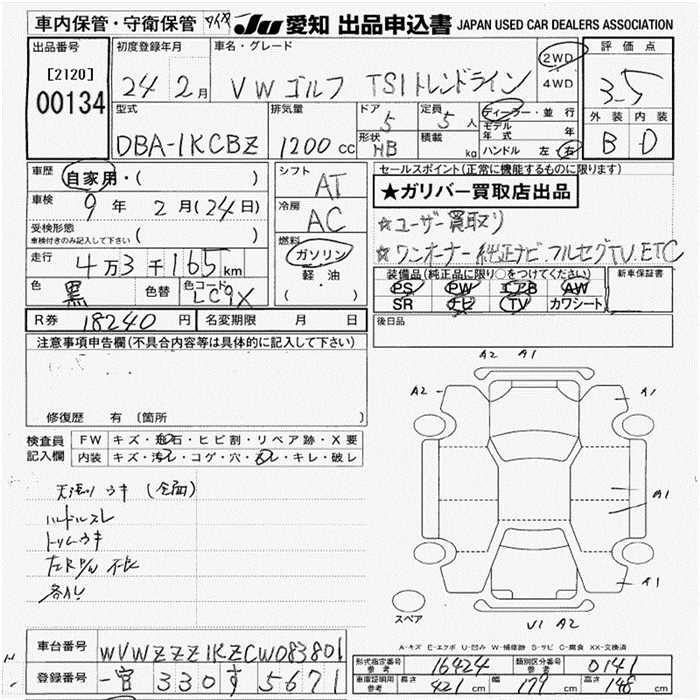 車内保管・守衛保管 タイヤ JU 愛知 出品申込書 JAPAN USED CAR DEALERS ASSOCIATION
出品番号 初度登録年月 車名・グレード 2WD 評価点
[2120] 24 年 2 月 VW ゴルフ TSIトレンドライン 4WD 3.5
00134
型式 排気量 ドア 5 定員 5 人 ディーラー・並行 外装 内装
DBA-1KCBZ 1200 cc 形状 HB 積載 kg モデル年式 年 B D
ハンドル 左・右
車歴 自家用・( ) シフト AT セールスポイント(正常に機能するものに限ります)
車検 9年 2月(24日) 冷房 AC ★ガリバー買取店出品
受検形態 ( ) ☆ユーザー買取り
車検付きのみ記入して下さい 燃料 ガソリン ☆ワンオーナー 純正ナビ.フルセグTV.ETC
走行 4万3千165km 軽・油
色 黒 色替 色コード LC9X ( )
装備品(純正品に限り○をつけてください) 新車保証書
PS PW エアB AW
SR ナビ TV カワシート
R券 18240 円 名変期限 月 日 後日品
注意事項申告欄(不具合内容等は具体的に記入して下さい)
修復歴 有 〔箇所 〕
検査員記入欄 FW キズ・飛石・ヒビ割・リペア跡・X要
内装 キズ・汚レ・コゲ・穴・スレ・キレ・破レ
天張りウキ (全面)
ハンドルスレ
トリムウキ
A2 A1
A2 A1
A1
A1
U1 A2
スペア
A-キズ E-エクボ U-凹み W-補修跡 S-サビ C-腐食 XX-交換済
車台番号 WVWZZZ1KZCW083801
登録番号 一宮 330 す 5671
形式指定番号 参考 16424 類別区分番号 参考 0141
車庫証明用 参考 長さ 421 cm 幅 179 cm 高さ 148 cm